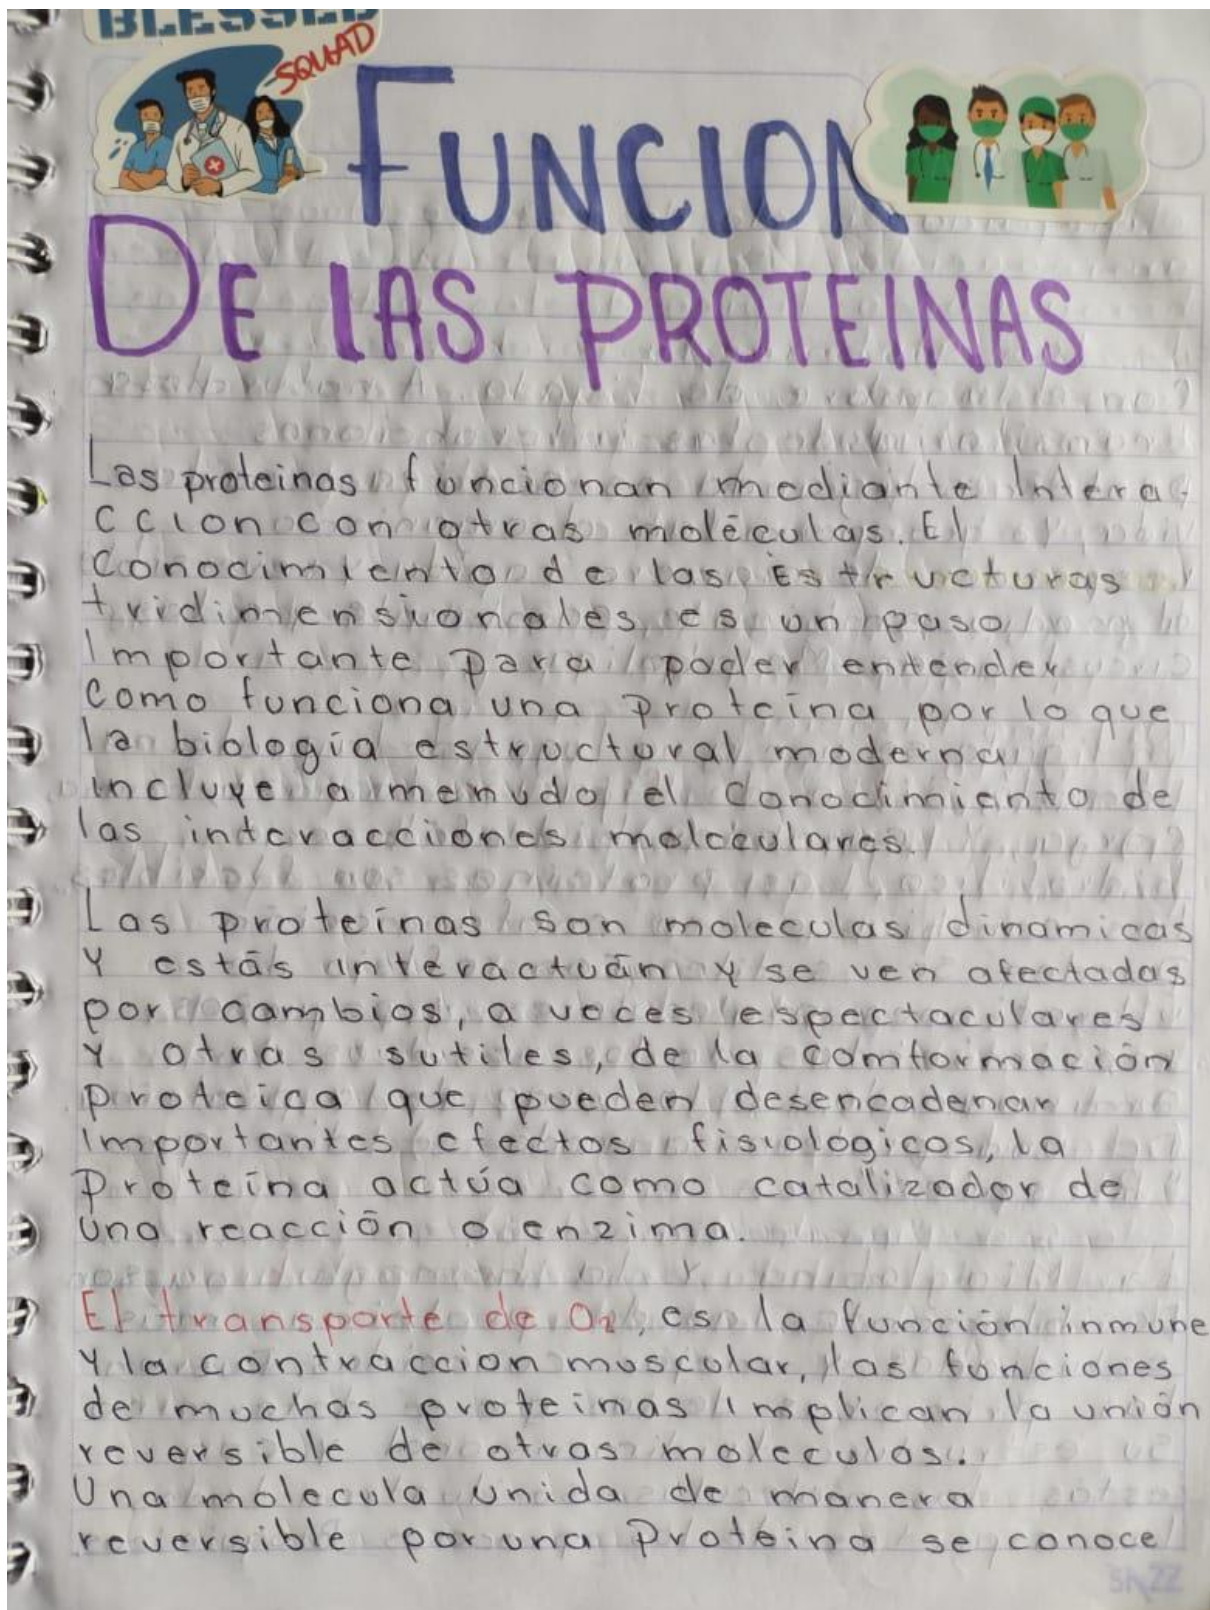 BLESSED
SQUAD
FUNCION
DE LAS PROTEINAS
Las proteinas funcionan mediante Intera-
ccion con otras moléculas. El
Conocimiento de las Estructuras
tridimensionales es un paso
Importante para poder entender
como funciona una Proteína por lo que
la biología estructural moderna
incluye a menudo el Conocimianto de
las interacciones moleculares.
Las proteínas son moleculas dinamicas
Y estás interactuán y se ven afectadas
por cambios, a veces espectaculares
Y otras sutiles, de la comformación
proteica que pueden desencadenar
Importantes efectos fisiológicos, la
Proteína actúa como catalizador de
Una reacción o enzima.
El transporte de O2, es la función inmune
Y la contraccion muscular, las funciones
de muchas proteinas implican la unión
reversible de otras moleculas.
Una molecula unida de manera
reversible por una Proteina se conoce